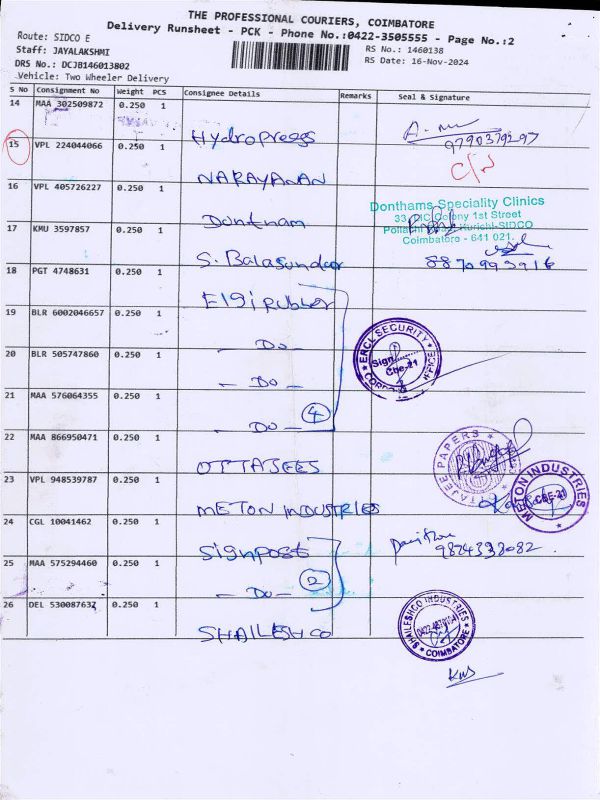 THE PROFESSIONAL COURIERS, COIMBATORE
Delivery Runsheet - PCK - Phone No.:0422-3505555 - Page No.:2
Route: SIDCO E
RS No.: 1460138
Staff: JAYALAKSHMI
DRS No.: DCJB146013802
RS Date: 16-Nov-2024
Vehicle: Two Wheeler Delivery
S No Consignment No Weight PCS Consignee Details Remarks Seal & Signature
14 MAA 302509872 0.250 1
Hydropress
9790379297
15 VPL 224044066 0.250 1
NARAYANAN
16 VPL 405726227 0.250 1
Dontnam
Donthams Speciality Clinics
1st Street
Kurichi-SIDCO
Coimbatore - 641 021.
17 KMU 3597857 0.250 1
S. Balasundar
8870993916
18 PGT 4748631 0.250 1
Elgi rubber
19 BLR 6002046657 0.250 1
- Do -
ERCL SECURITY OFFICE
Sign
Cbe-21
20 BLR 505747860 0.250 1
- Do -
21 MAA 576064355 0.250 1
4
- Do -
22 MAA 866950471 0.250 1
OTTAJEES
TAJEE PAPERS
23 VPL 948539787 0.250 1
METON INDUSTRIES
METON INDUSTRIES
CBE-21
24 CGL 10041462 0.250 1
Signpost
9824338082
25 MAA 575294460 0.250 1
2
- Do -
26 DEL 530087637 0.250 1
SHAILESHCO
SHAILESHCO INDUSTRIES
COIMBATORE